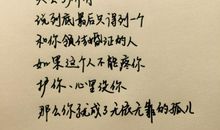 说到底最后只得到一个
和你领结婚证的人
如果这个人不能疼你
护你、心里没你
那么你就成了无依无靠的孤儿